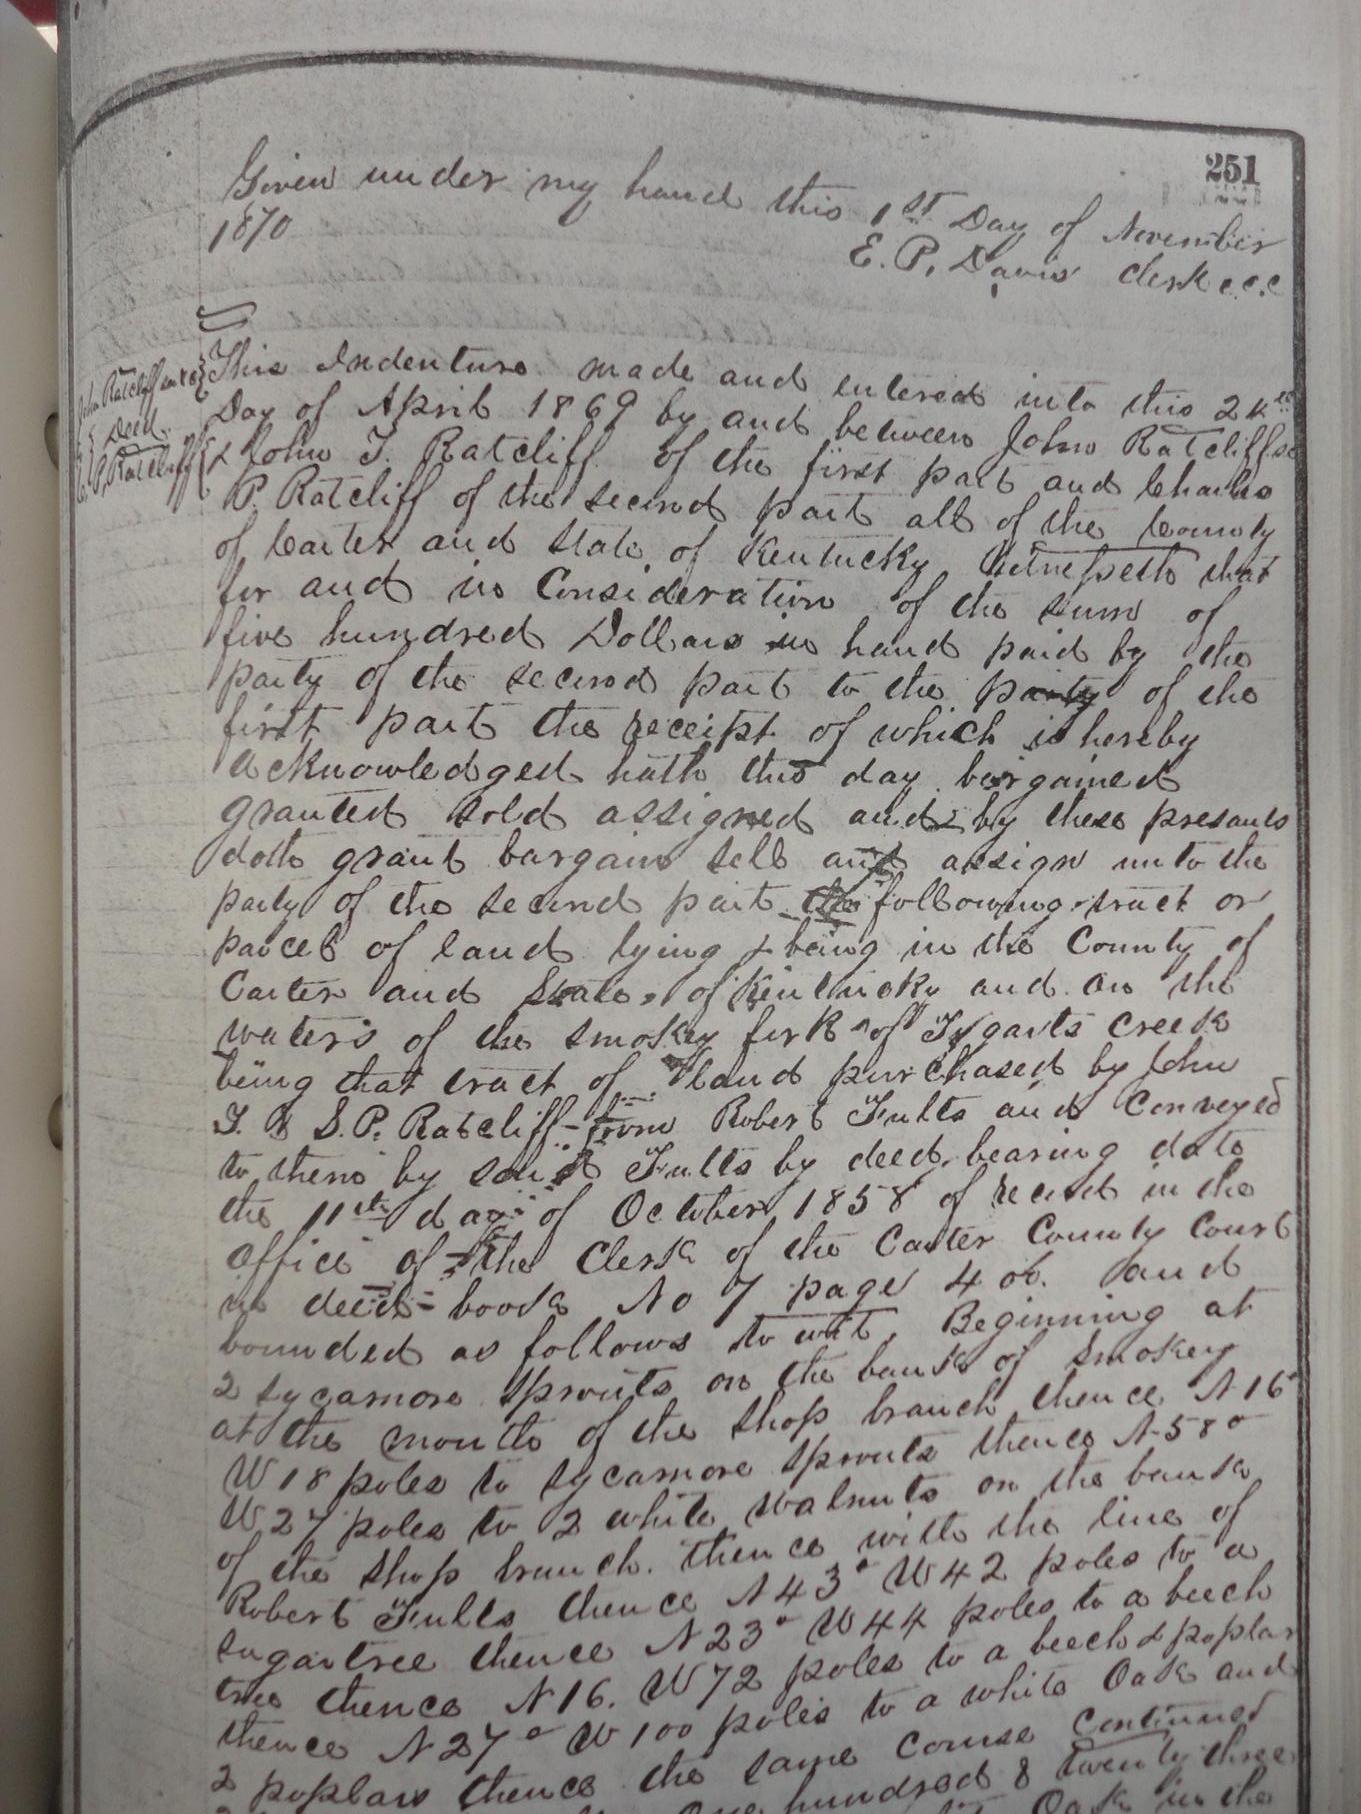 251
Given under my hand this 1st Day of November
1870
E. P. Davis Clerk C.C.C
John Ratcliff
Deed
C. P. Ratcliff
This Indenture made and entered into this 24th
Day of April 1869 by and between John Ratcliff sr
& John T. Ratcliff of the first part and Charles
P. Ratcliff of the second part all of the County
of Carter and State of Kentucky Witnesseth that
for and in Consideration of the sum of
five hundred Dollars in hand paid by the
party of the second part to the party of the
first part the receipt of which is hereby
acknowledged hath this day bargained
granted sold assigned and by these presants
doth grant bargain sell and assign unto the
party of the second part the following tract or
parcel of land lying & being in the County of
Carter and State of Kentucky and on the
waters of the smokey fork of Tygarts Creek
being that tract of land purchased by John
T. & S. P. Ratcliff from Robert Fults and Conveyed
to them by said Fults by deed bearing date
the 11th day of October 1858 of record in the
office of the Clerk of the Carter County Court
in deed book No 7 page 406. and
bounded as follows to wit, Beginning at
2 sycamore sprouts on the bank of Smokey
at the mouth of the shop branch thence N16°
W 18 poles to sycamore sprouts thence N 58°
W 27 poles to 2 white walnuts on the bank
of the shop branch. thence with the line of
Robert Fults thence N 43° W 42 poles to a
sugartree thence N 23° W 44 poles to a beech
tree thence N 16. W 72 poles to a beech & poplar
thence N 27° W 100 poles to a white Oak and
2 poplars thence the same course continued
one hundred & twenty three
Oak in the